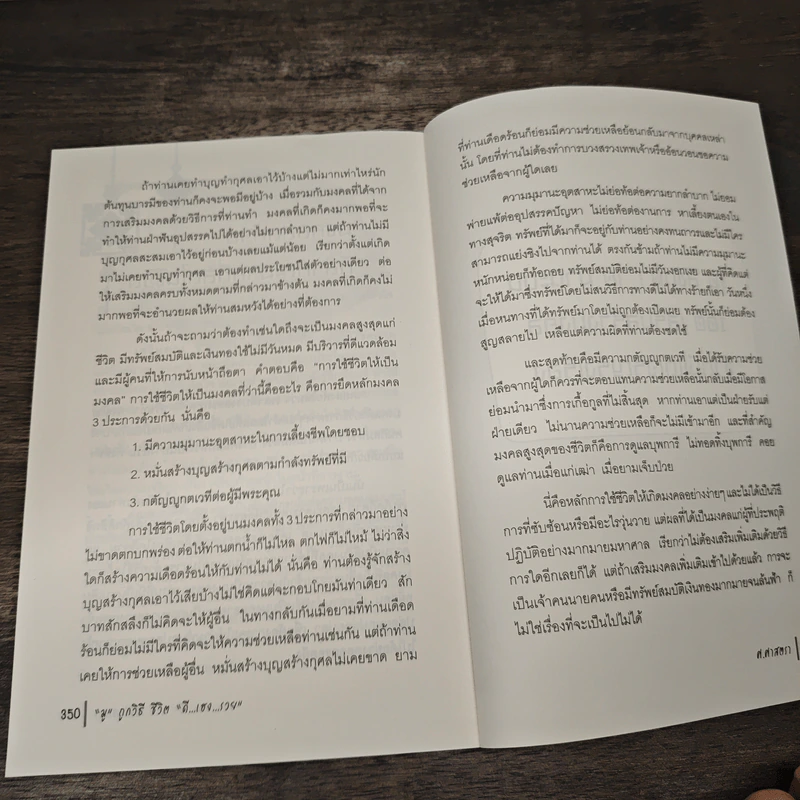 ถ้าท่านเคยทำบุญทำกุศลเอาไว้บ้างแต่ไม่มากเท่าไหร่นัก
ต้นทุนบารมีของท่านก็คงจะพอมีอยู่บ้าง เมื่อรวมกับมงคลที่ได้จาก
การเสริมมงคลด้วยวิธีการที่ท่านทำ มงคลที่เกิดก็คงมากพอที่จะ
ทำให้ท่านฝ่าฟันอุปสรรคไปได้อย่างไม่ยากลำบาก แต่ถ้าท่านไม่มี
บุญกุศลสะสมเอาไว้อยู่ก่อนบ้างเลยแม้แต่น้อย เรียกว่าตั้งแต่เกิด
มาไม่เคยทำบุญทำกุศล เอาแต่ผลประโยชน์ใส่ตัวอย่างเดียว ต่อ
ให้เสริมมงคลครบทั้งหมดตามที่กล่าวมาข้างต้น มงคลที่เกิดก็คงไม่
มากพอที่จะอำนวยผลให้ท่านสมหวังได้อย่างที่ต้องการ
ดังนั้นถ้าจะถามว่าต้องทำเช่นใดถึงจะเป็นมงคลสูงสุดแก่
ชีวิต มีทรัพย์สมบัติและเงินทองใช้ไม่มีวันหมด มีบริวารที่ดีแวดล้อม
และมีผู้คนที่ให้การนับหน้าถือตา คำตอบคือ "การใช้ชีวิตให้เป็น
มงคล" การใช้ชีวิตให้เป็นมงคลที่ว่านี้คืออะไร คือการยึดหลักมงคล
3 ประการด้วยกัน นั่นคือ
1. มีความมุมานะอุตสาหะในการเลี้ยงชีพโดยชอบ
2. หมั่นสร้างบุญสร้างกุศลตามกำลังทรัพย์ที่มี
3. กตัญญูกตเวทีต่อผู้มีพระคุณ
การใช้ชีวิตโดยตั้งอยู่บนมงคลทั้ง 3 ประการที่กล่าวมาอย่าง
ไม่ขาดตกบกพร่อง ต่อให้ท่านตกน้ำก็ไม่ไหล ตกไฟก็ไม่ไหม้ ไม่ว่าสิ่ง
ใดก็สร้างความเดือดร้อนให้กับท่านไม่ได้ นั่นคือ ท่านต้องรู้จักสร้าง
บุญสร้างกุศลเอาไว้เสียบ้างไม่ใช่คิดแต่จะกอบโกยมันท่าเดียว สัก
บาทสักสลึงก็ไม่คิดจะให้ผู้อื่น ในทางกลับกันเมื่อยามที่ท่านเดือด
ร้อนก็ย่อมไม่มีใครที่คิดจะให้ความช่วยเหลือท่านเช่นกัน แต่ถ้าท่าน
เคยให้การช่วยเหลือผู้อื่น หมั่นสร้างบุญสร้างกุศลไม่เคยขาด ยาม
350 "มู" ถูกวิธี ชีวิต "ดี...เฮง...รวย"
ที่ท่านเดือดร้อนก็ย่อมมีความช่วยเหลือย้อนกลับมาจากบุคคลเหล่า
นั้น โดยที่ท่านไม่ต้องทำการบวงสรวงเทพเจ้าหรืออ้อนวอนขอความ
ช่วยเหลือจากผู้ใดเลย
ความมุมานะอุตสาหะไม่ย่อท้อต่อความยากลำบาก ไม่ยอม
พ่ายแพ้ต่ออุปสรรคปัญหา ไม่ย่อท้อต่องานการ หาเลี้ยงตนเองใน
ทางสุจริต ทรัพย์ที่ได้มาก็จะอยู่กับท่านอย่างคงทนถาวรและไม่มีใคร
สามารถแย่งชิงไปจากท่านได้ ตรงกันข้ามถ้าท่านไม่มีความมุมานะ
หนักหน่อยก็ท้อถอย ทรัพย์สมบัติย่อมไม่มีวันงอกเงย และผู้ที่คิดแต่
จะให้ได้มาซึ่งทรัพย์โดยไม่สนวิธีการทางดีไม่ได้ทางร้ายก็เอา วันหนึ่ง
เมื่อหนทางที่ได้ทรัพย์มาโดยไม่ถูกต้องเปิดเผย ทรัพย์นั้นก็ย่อมต้อง
สูญสลายไป เหลือแต่ความผิดที่ท่านต้องชดใช้
และสุดท้ายคือมีความกตัญญูกตเวที เมื่อได้รับความช่วย
เหลือจากผู้ใดก็ควรที่จะตอบแทนความช่วยเหลือนั้นกลับเมื่อมีโอกาส
ย่อมนำมาซึ่งการเกื้อกูลที่ไม่สิ้นสุด หากท่านเอาแต่เป็นฝ่ายรับแต่
ฝ่ายเดียว ไม่นานความช่วยเหลือก็จะไม่มีเข้ามาอีก และที่สำคัญ
มงคลสูงสุดของชีวิตก็คือการดูแลบุพการี ไม่ทอดทิ้งบุพการี คอย
ดูแลท่านเมื่อแก่เฒ่า เมื่อยามเจ็บป่วย
นี่คือหลักการใช้ชีวิตให้เกิดมงคลอย่างง่ายๆ และไม่ได้เป็นวิธี
การที่ซับซ้อนหรือมีอะไรวุ่นวาย แต่ผลที่ได้เป็นมงคลแก่ผู้ที่ประพฤติ
ปฏิบัติอย่างมากมายมหาศาล เรียกว่าไม่ต้องเสริมเพิ่มเติมด้วยวิธี
การใดอีกเลยก็ได้ แต่ถ้าเสริมมงคลเพิ่มเติมเข้าไปด้วยแล้ว การจะ
เป็นเจ้าคนนายคนหรือมีทรัพย์สมบัติเงินทองมากมายจนล้นฟ้า ก็
ไม่ใช่เรื่องที่จะเป็นไปไม่ได้